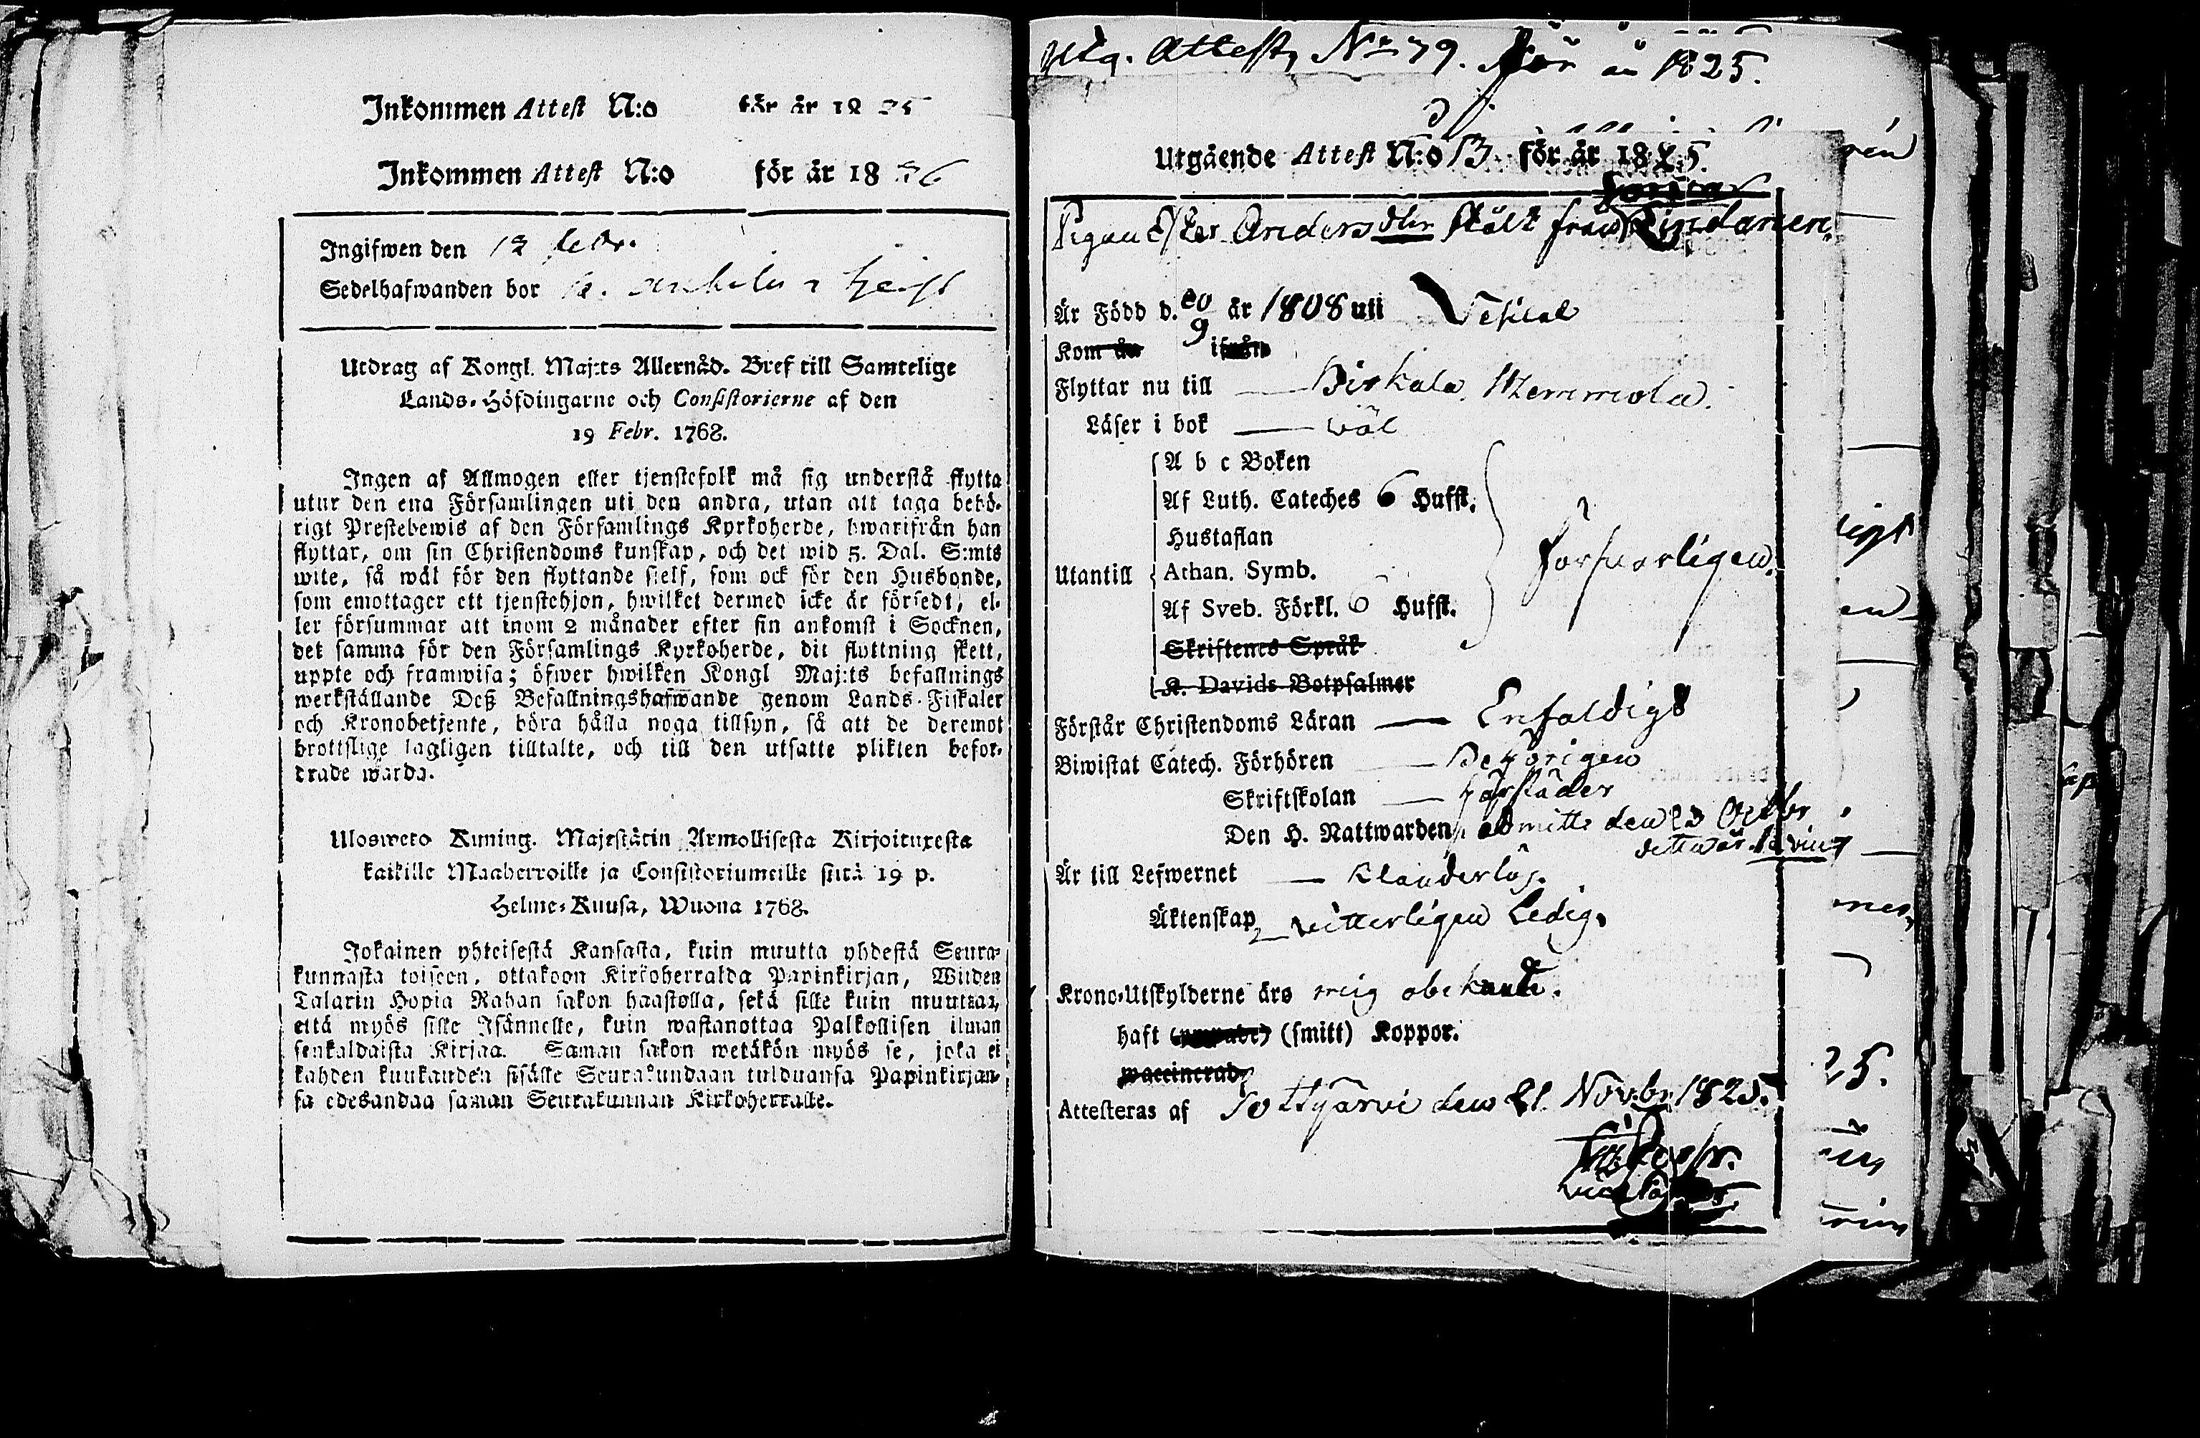 Inkommen Attest N:o för år 18 25
Inkommen Attest N:o för år 18 26
Ingifwen den 12 febr.
Sedelhafwanden bor
Utdrag af Kongl. Maj:ts Allernåd. Bref till Samtelige
Lands-Höfdingarne och Consistorierne af den
19 Febr. 1768.
Ingen af Allmogen eller tjenstefolk må sig understå flytta
utur den ena Församlingen uti den andra, utan att taga behö-
rigt Prestebewis af den Församlings Kyrkoherde, hwarifrån han
flyttar, om sin Christendoms kunskap, och det wid 5. Dal. S:mts
wite, så wäl för den flyttande sielf, som ock för den Husbonde,
som emottager ett tjenstehjon, hwilket dermed icke är försedt, el-
ler försummar att inom 2 månader efter sin ankomst i Socknen,
det samma för den Församlings Kyrkoherde, dit flyttning skett,
uppte och framwisa; öfwer hwilken Kongl Maj:ts befallnings
werkställande Deß Befallningshafwande genom Lands-Fiskaler
och Kronobetjente, böra hålla noga tillsyn, så att de deremot
brottslige lagligen tilltalte, och till den utsatte plikten befor-
drade warda.
Ulosweto Kuning. Majestätin Armollisesta Kirjoituxesta
kaikille Maaherroille ja Consistoriumeille siitä 19 p.
Helme-Kuusa, Wuona 1768.
Jokainen yhteisestä Kansasta, kuin muutta yhdestä Seura-
kunnasta toiseen, ottakoon Kirkoherralda Papinkirjan, Wiiden
Talarin Hopia Rahan sakon haastolla, sekä sille kuin muuttaa,
että myös sille Isännelle, kuin wastanottaa Palkollisen ilman
senkaldaista Kirjaa. Saman sakon wetäkön myös se, joka ei
kahden kuukauden sisälle Seurakundaan tulduansa Papinkirjan-
sa edesandaa saman Seurakunnan Kirkoherralle.
Utg. Attest, No 79. för år 1825.
Utgående Attest N:o 13 för år 1825.
Pigan Ester Anders dtr Stålt från Lindanen
Är Född d. 20/9 år 1808 uti Vesilax
Kom år ifrån
Flyttar nu till Birkala, Hemmola.
Läser i bok wäl
A b c Boken
Af Luth. Cateches 6 Hufst.
Hustaflan
Utantill Athan. Symb. Försvarligen.
Af Sveb. Förkl. 6 Hufst.
Skriftenes Språk
K. Davids Botpsalmer
Förstår Christendoms Läran Enfaldigt
Biwistat Catech. Förhören Behörigen
Skriftskolan härstädes
Den H. Nattwarden admitt. den 23 Octbr
Är till Lefwernet Klanderlös.
Äktenskap witterligen Ledig.
Krono-Utskylderne äro mig obekante.
haft (smitt) Koppor.
waccinerad
Attesteras af Tottijärvi den 21. Novbr 1825.